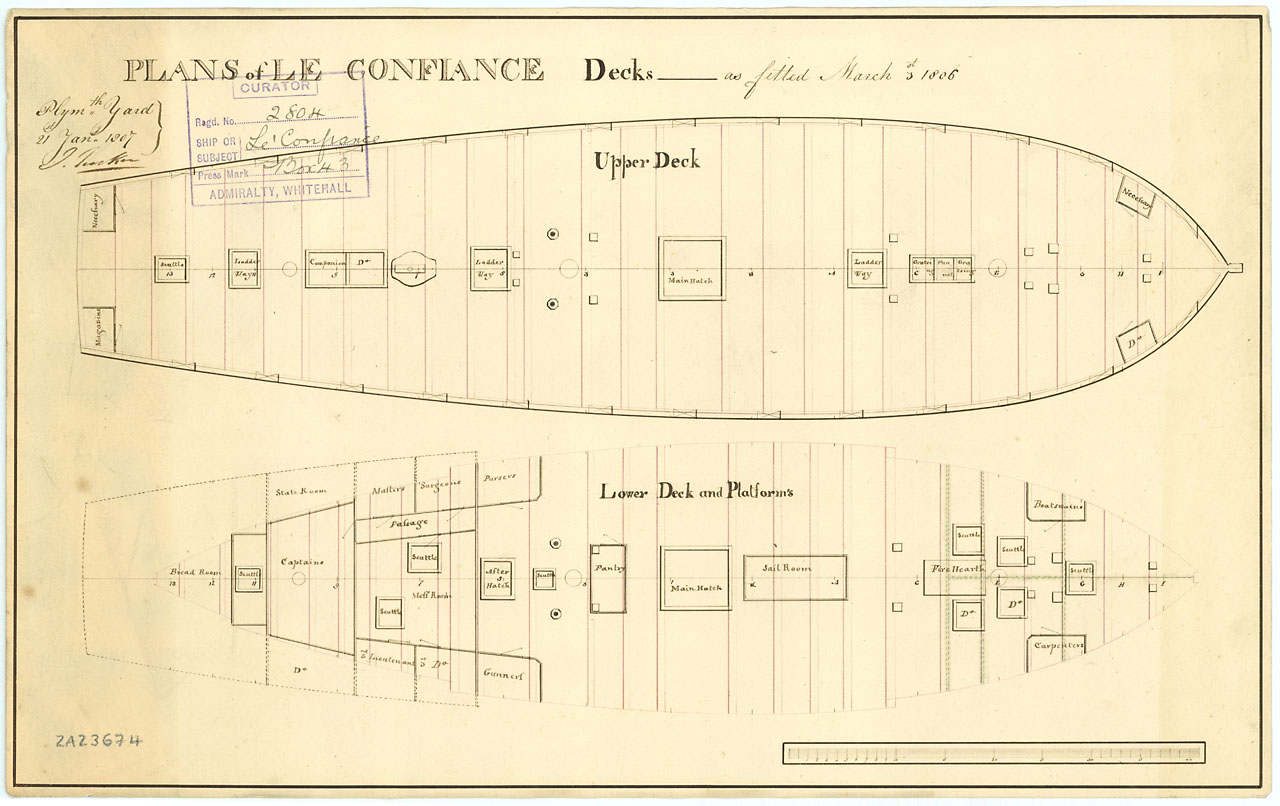 PLANS of LE CONFIANCE Decks as fitted March 1806
Plymth Yard
21 Jany 1807
J. Tucker
CURATOR
Regd. No. 2804
SHIP OR SUBJECT Le' Confiance
Press Mark Box 43
ADMIRALTY, WHITEHALL
Upper Deck
Necessary
Scuttle
13
12
Ladder Ways
Companion Do
9
Ladder Way 8
3
Main Hatch
Ladder Way
C
E
G
H
Necessary
Do
Magazine
Lower Deck and Platforms
State Room
Masters
Surgeons
Pursers
Passage
Boatswains
Bread Room
13
12
Scuttle
11
Captains
9
Scuttle
7
Mess Room
Scuttle
After
5
Hatch
Scuttle
3
Pantry
Main Hatch
Sail Room
C
Fire Hearth
Scuttle
Do
Scuttle
E
Do
Scuttle
G
H
Do
Lieutenant
Do
Gunners
Carpenters
ZAZ3674